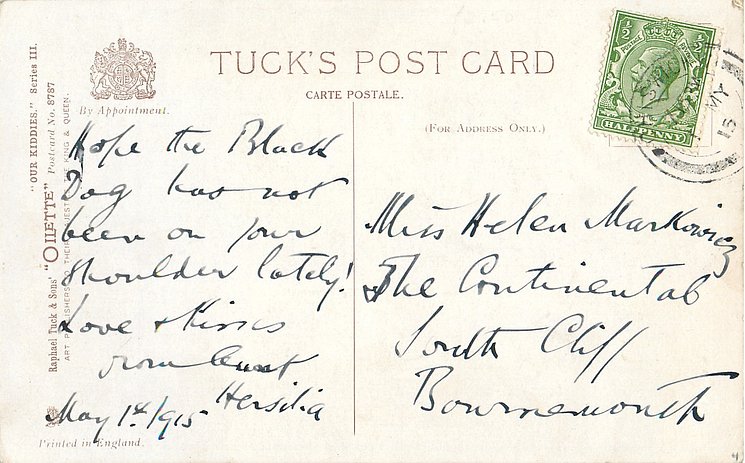 TUCK'S POST CARD
CARTE POSTALE.
By Appointment.
(FOR ADDRESS ONLY.)
"OUR KIDDIES." Series III.
Raphael Tuck & Sons' "OILETTE" Postcard No. 8787
ART PUBLISHERS TO THEIR MAJESTIES THE KING & QUEEN.
Hope the Black
Dog has not
been on your
shoulder lately!
Love & kisses
from Aunt
Hersilia
May 1st/1915
Printed in England.
Miss Helen Markowicz
The Continental
South Cliff
Bournemouth
½ ½
POSTAGE
HALFPENNY
MY
15
4